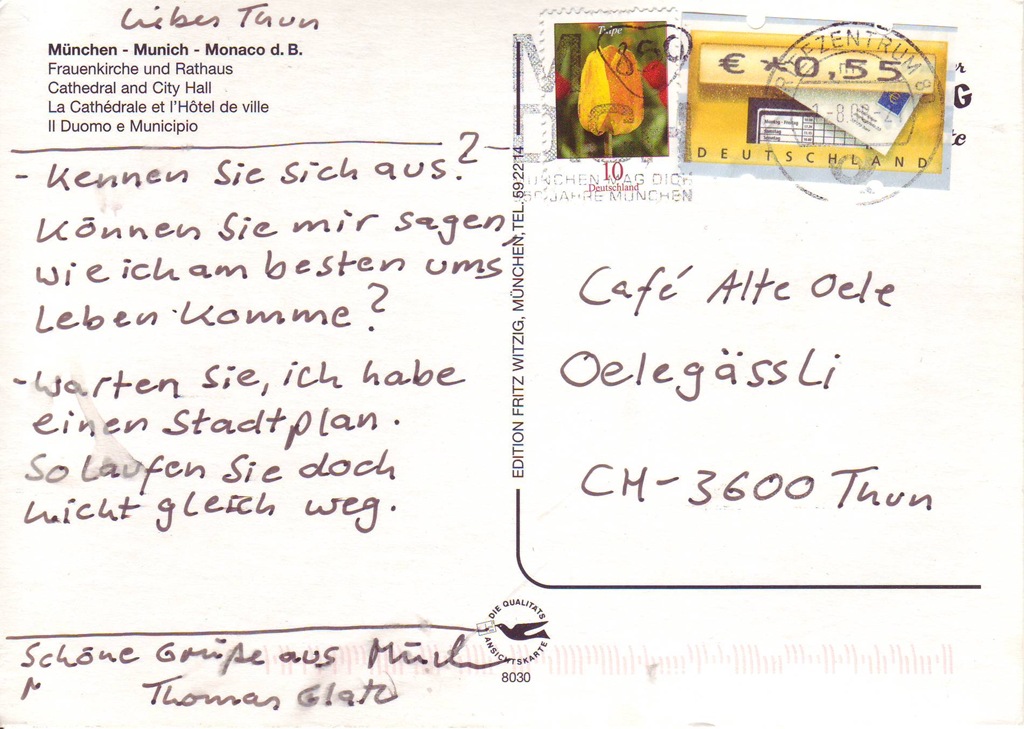 Lieber Thun
München - Munich - Monaco d. B.
Frauenkirche und Rathaus
Cathedral and City Hall
La Cathédrale et l'Hôtel de ville
Il Duomo e Municipio
- Kennen Sie sich aus?
Können Sie mir sagen,
wie ich am besten ums
Leben komme?
- Warten Sie, ich habe
einen Stadtplan.
So laufen Sie doch
nicht gleich weg.
Schöne Grüße aus
Thomas Glatz
EDITION FRITZ WITZIG, MÜNCHEN, TEL. 592214
DIE QUALITÄTS
ANSICHTSKARTE
8030
Tulpe
10
Deutschland
850
MÜNCHEN MAG DICH
850 JAHRE MÜNCHEN
€ *0,55
DEUTSCHLAND
BRIEFZENTRUM 8
G
Café Alte Oele
Oelegässli
CH-3600 Thun